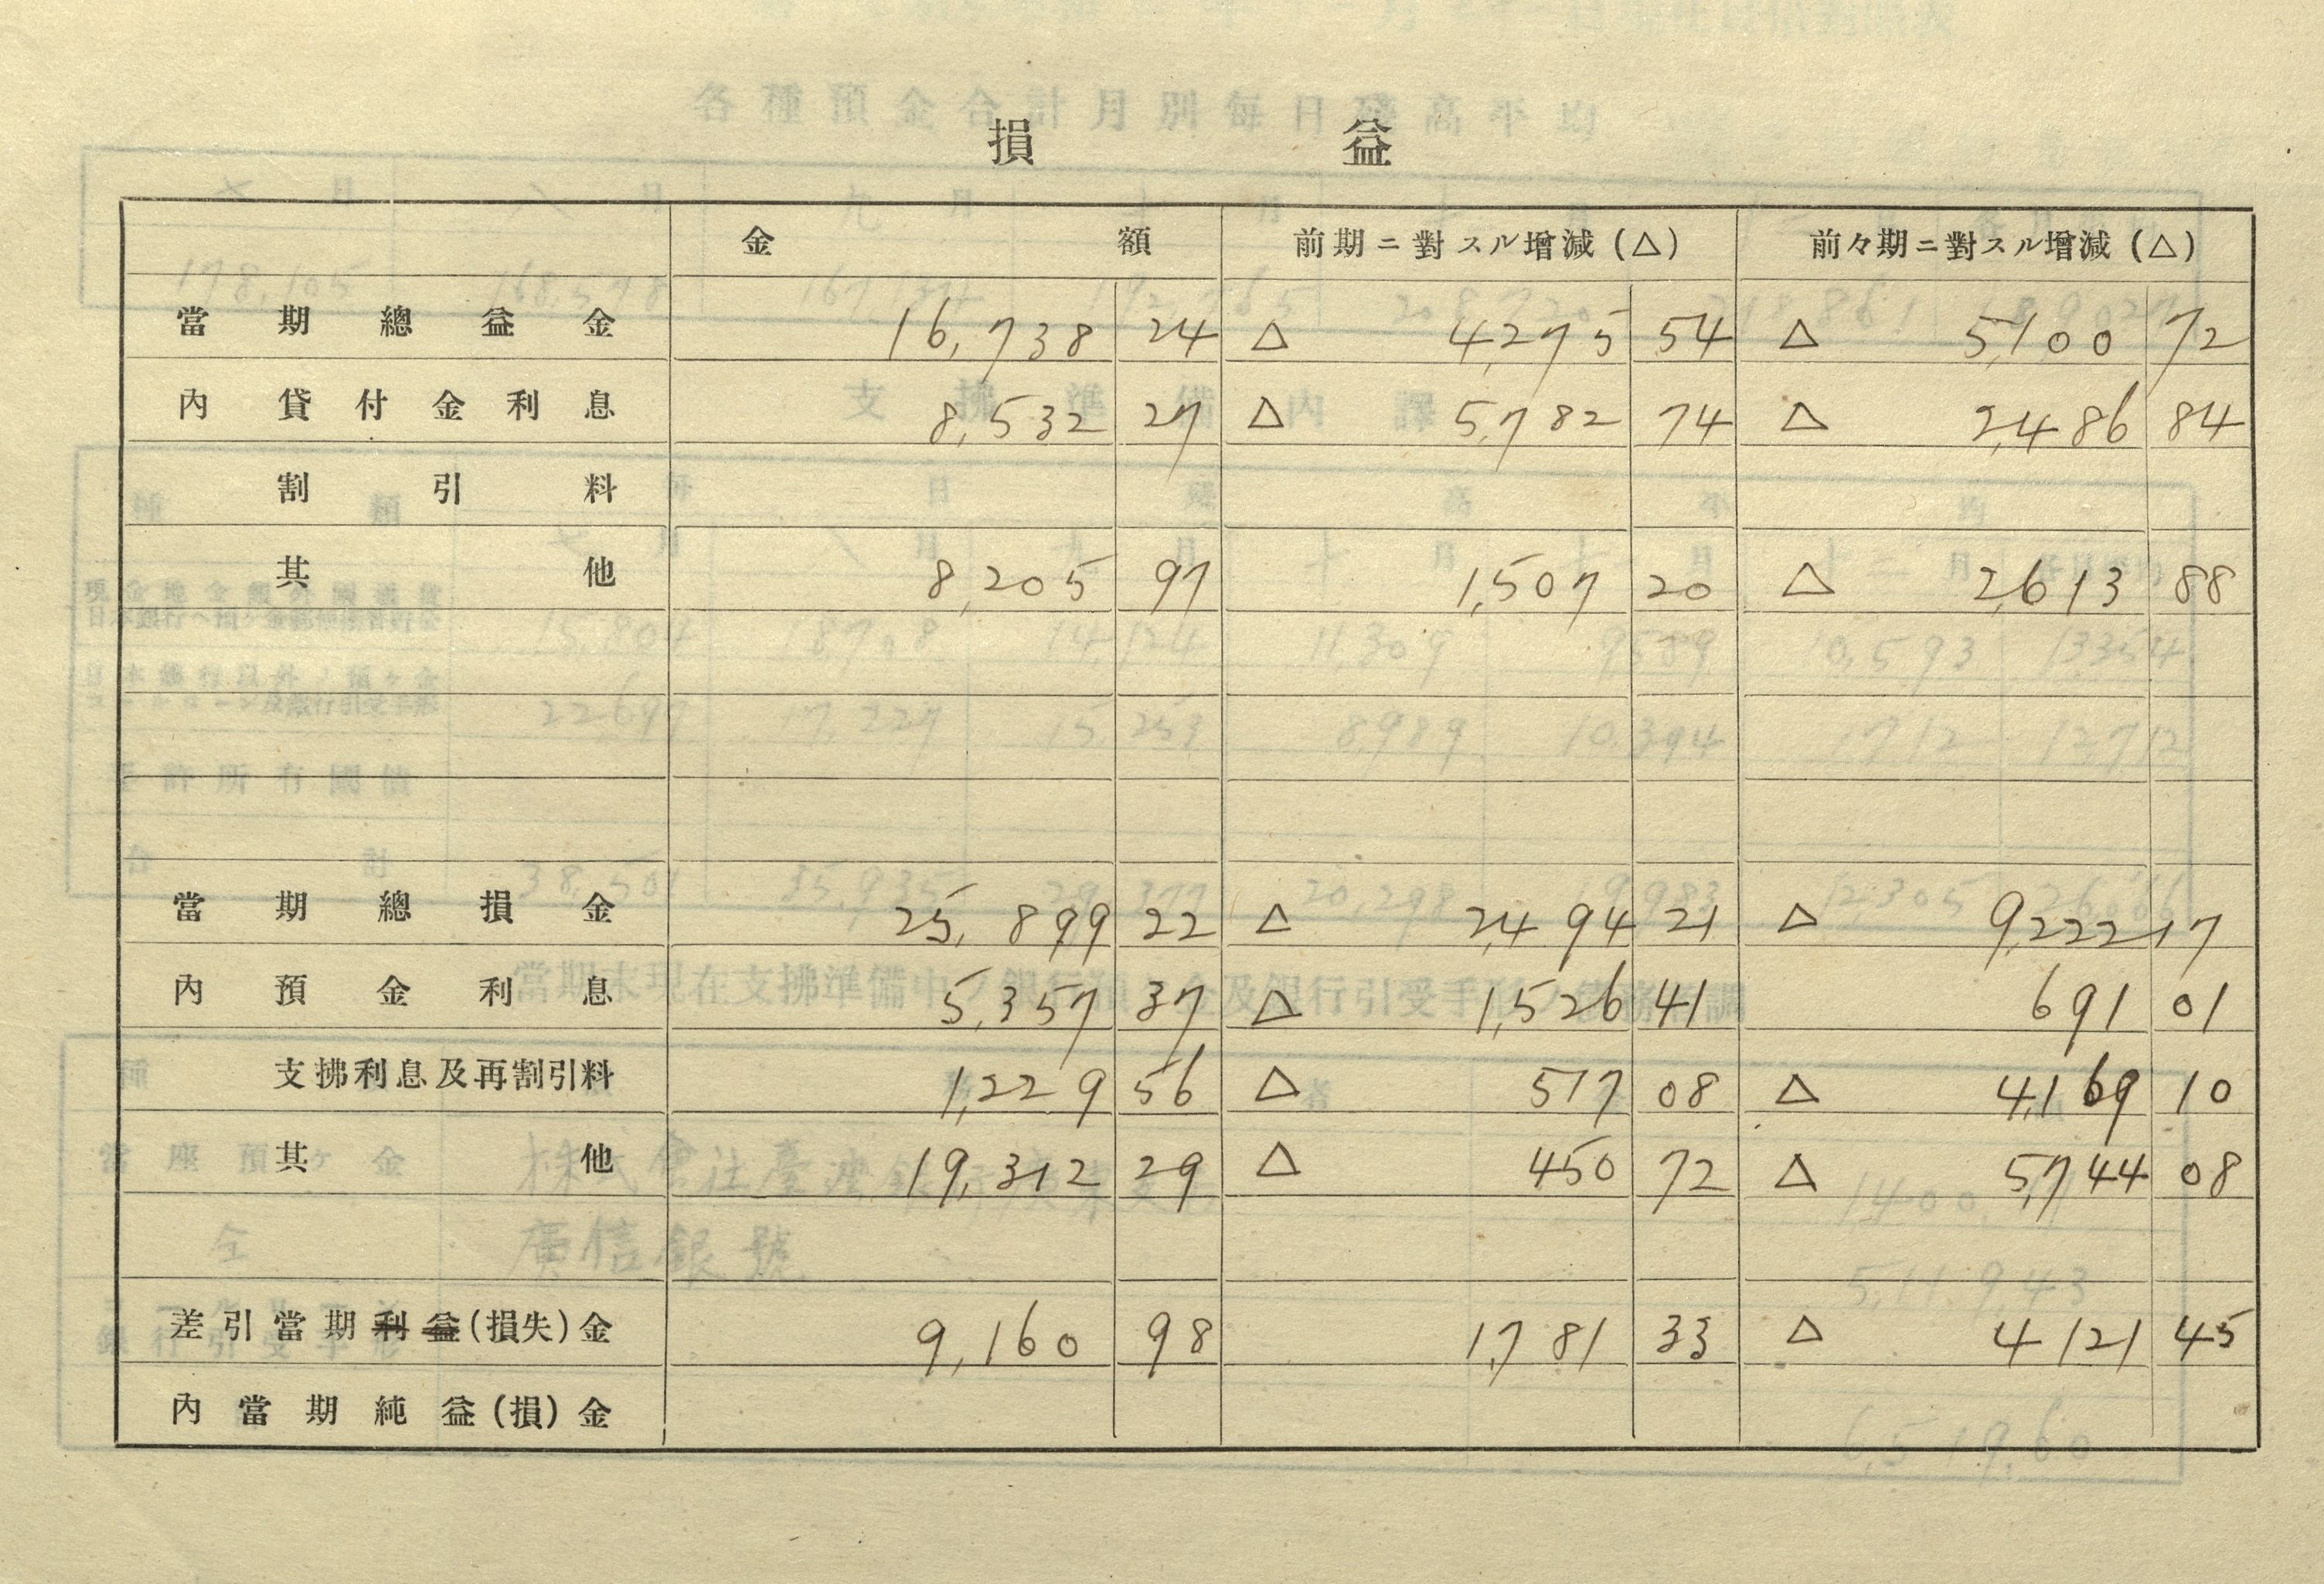 損益
金額 前期ニ對スル增減(△) 前々期ニ對スル增減(△)
當期總益金 16,738 24 △ 4,275 54 △ 5,100 72
內 貸付金利息 8,532 27 △ 5,782 74 △ 2,486 84
割引料
其他 8,205 97 1,507 20 △ 2,613 88
當期總損金 25,899 22 △ 2,494 21 △ 9,222 17
內 預金利息 5,357 37 △ 1,526 41 691 01
支拂利息及再割引料 1,229 56 △ 517 08 △ 4,169 10
其他 19,312 29 △ 450 72 △ 5,744 08
差引當期利益(損失)金 9,160 98 1,781 33 △ 4121 45
內當期純益(損)金